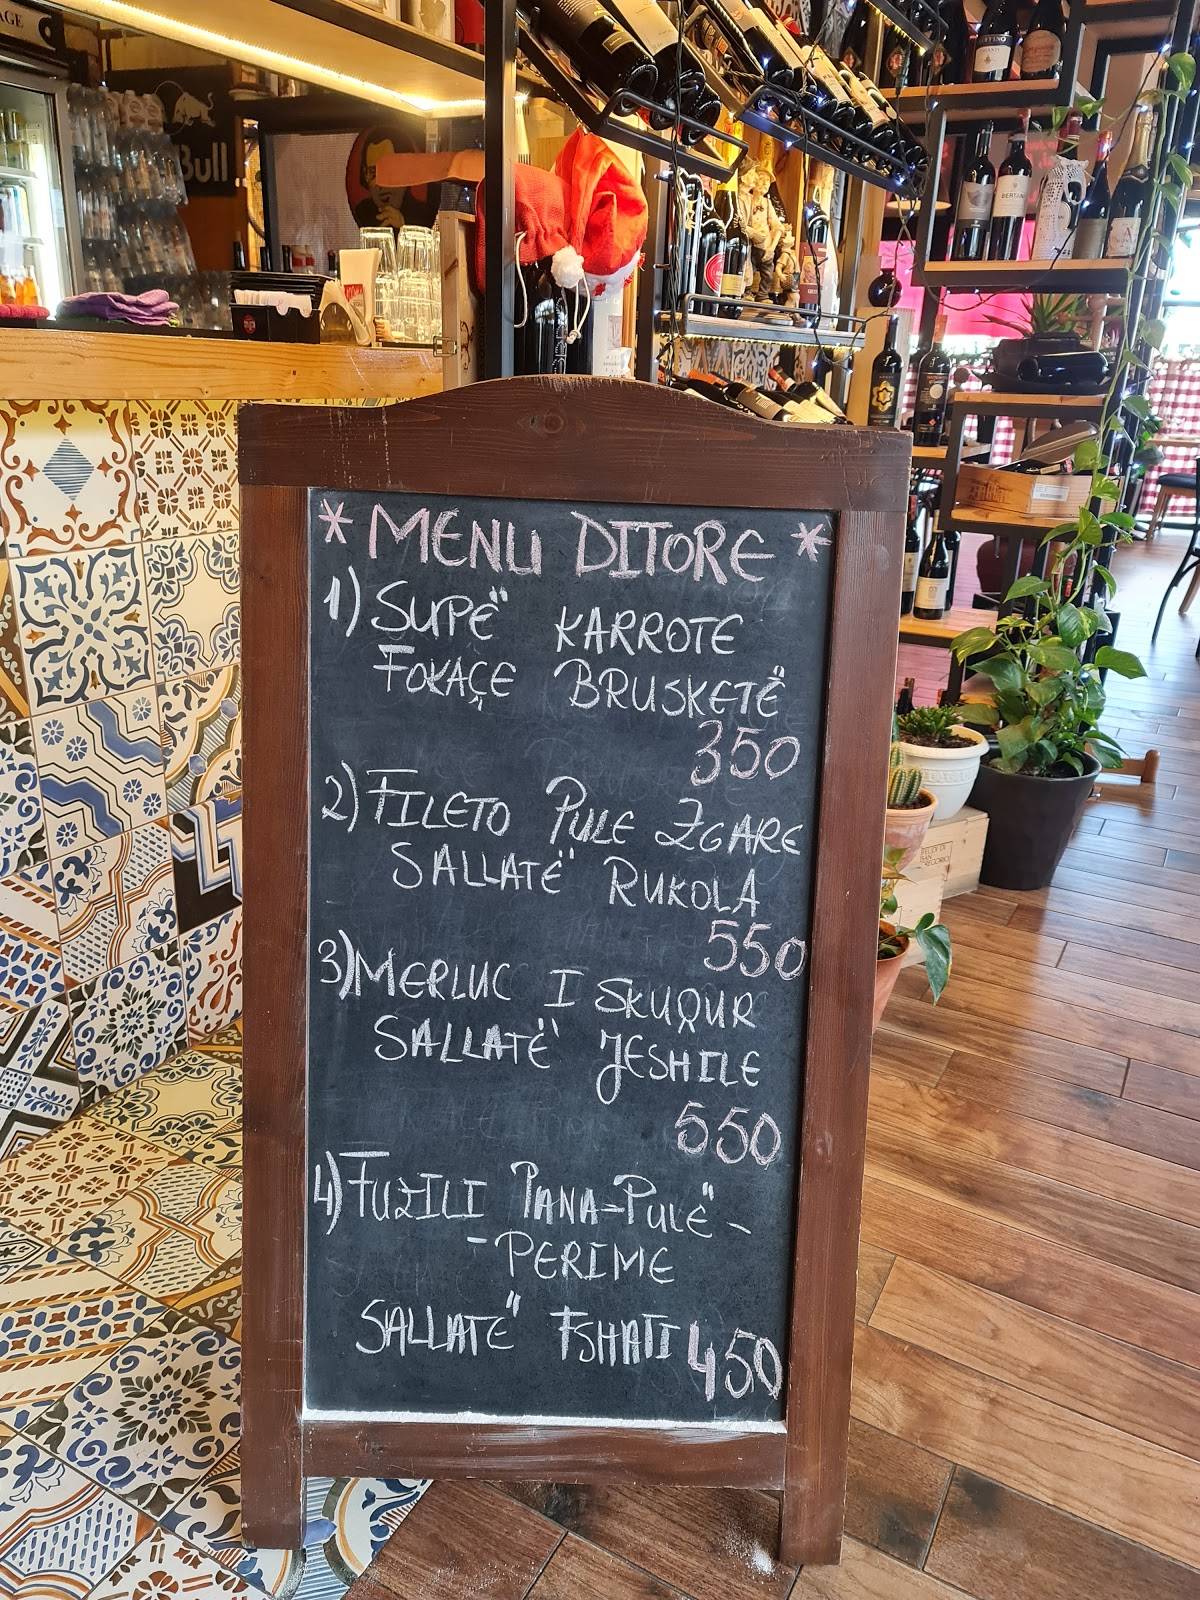 AGE
Bull
BERTANI
* MENU DITORE *
1) SUPË KARROTE
FOKAÇE BRUSKETË
350
2) FILETO PULE ZGARE
SALLATË RUKOLA
550
3) MERLUC I SKUQUR
SALLATË JESHILE
550
4) FUZILI PANA-PULË-
-PERIME
SALLATË FSHATI 450